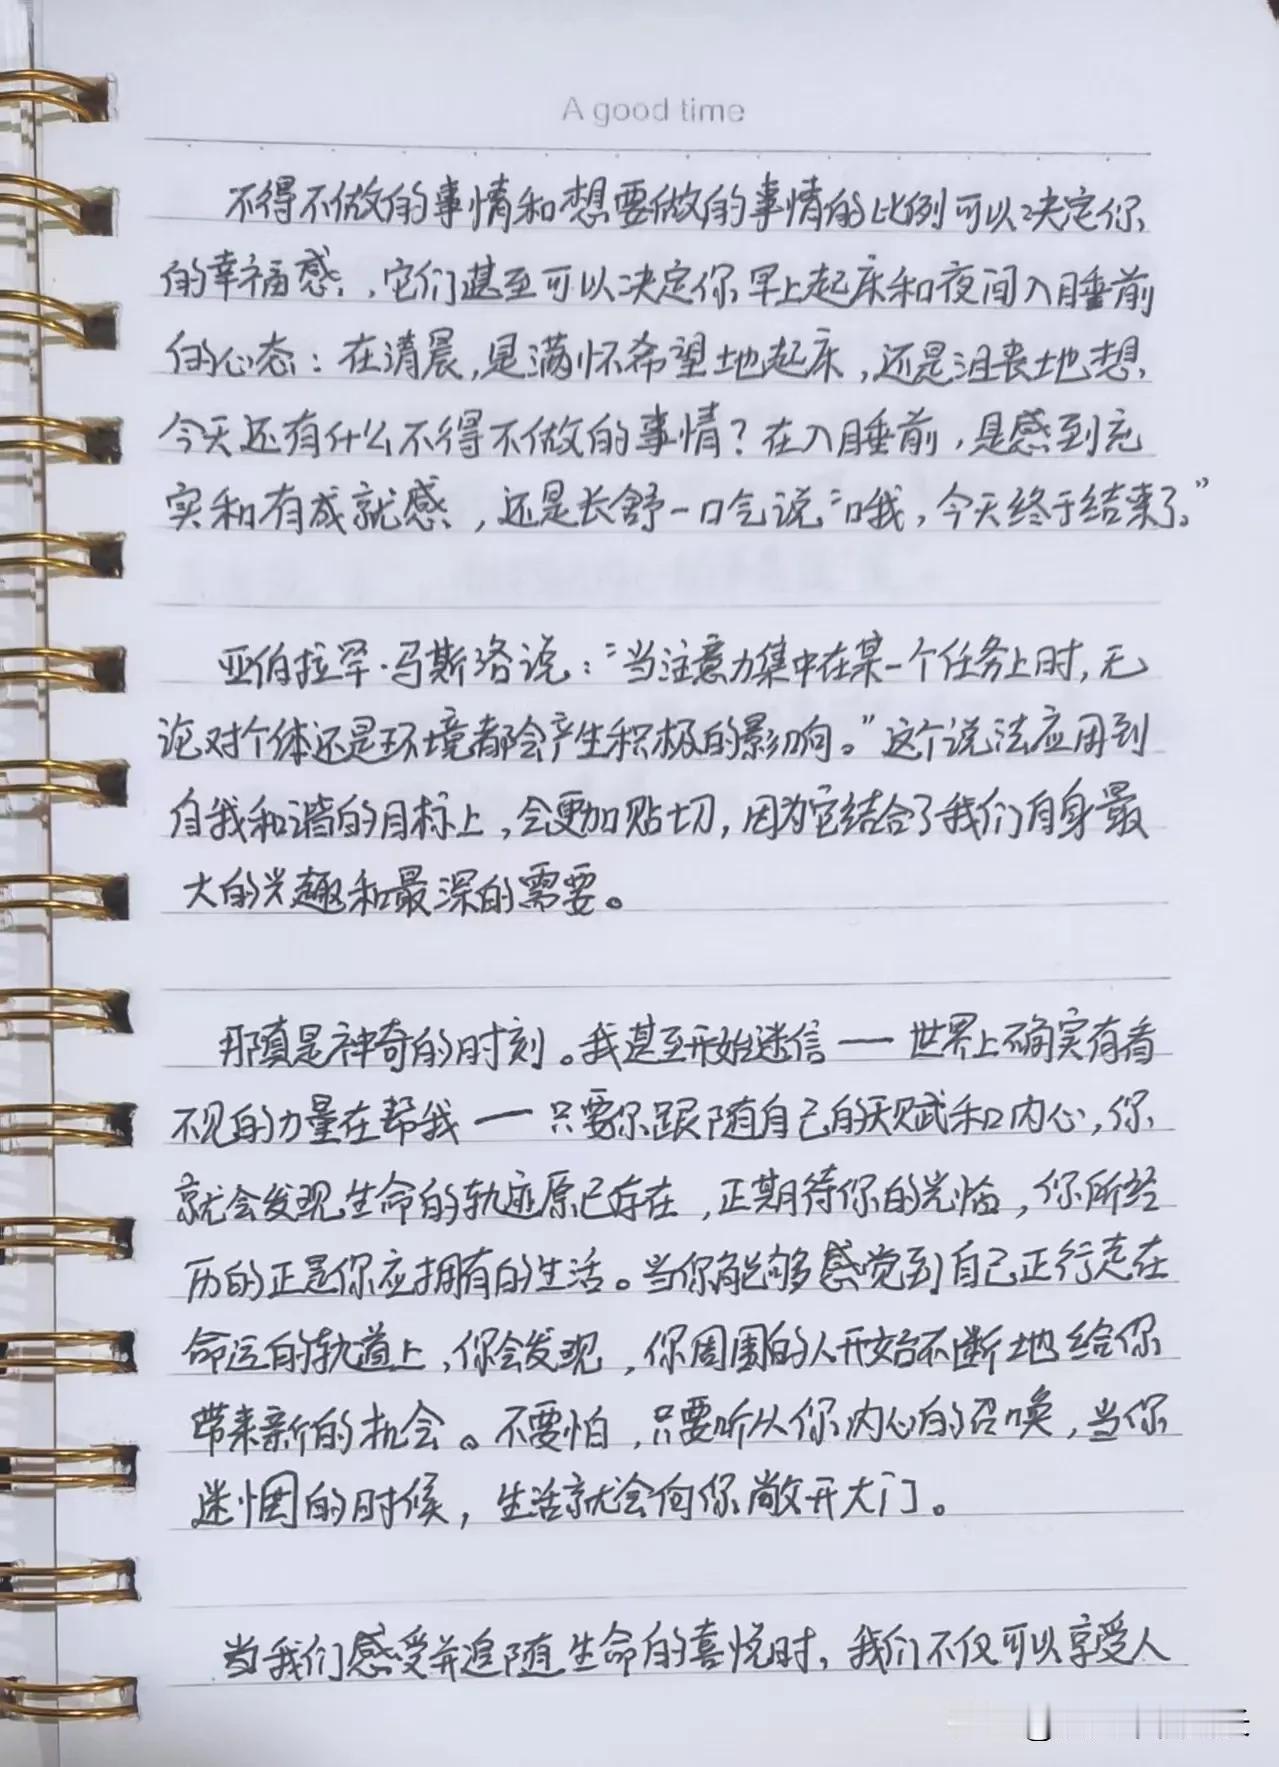 A good time
不得不做的事情和想要做的事情的比例可以决定你
的幸福感，它们甚至可以决定你早上起床和夜间入睡前
的心态：在清晨，是满怀希望地起床，还是沮丧地想，
今天还有什么不得不做的事情？在入睡前，是感到充
实和有成就感，还是长舒一口气说“哦，今天终于结束了。”
亚伯拉罕·马斯洛说：“当注意力集中在某一个任务上时，无
论对个体还是环境都会产生积极的影响。”这个说法应用到
自我和谐的目标上，会更加贴切，因为它结合了我们自身最
大的兴趣和最深的需要。
那真是神奇的时刻。我甚至开始迷信——世界上确实有看
不见的力量在帮我——只要你跟随自己的天赋和内心，你
就会发现生命的轨迹原已存在，正期待你的光临，你所经
历的正是你应拥有的生活。当你能够感觉到自己正行走在
命运的轨道上，你会发现，你周围的人开始不断地给你
带来新的机会。不要怕，只要听从你内心的召唤，当你
迷惘的时候，生活就会向你敞开大门。
当我们感受并追随生命的喜悦时，我们不仅可以享受人